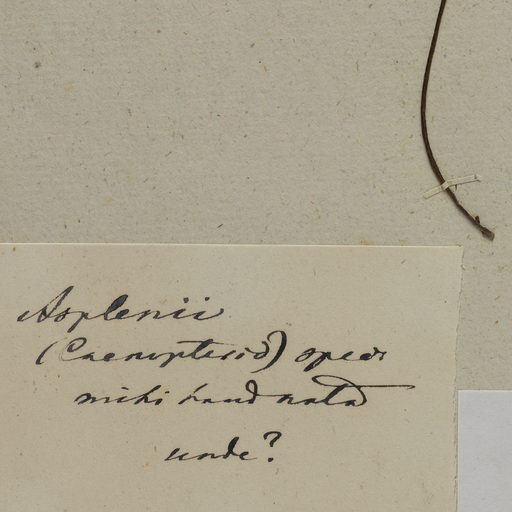 Asplenii
(Caenopterid) spec
mihi haud nota
unde?